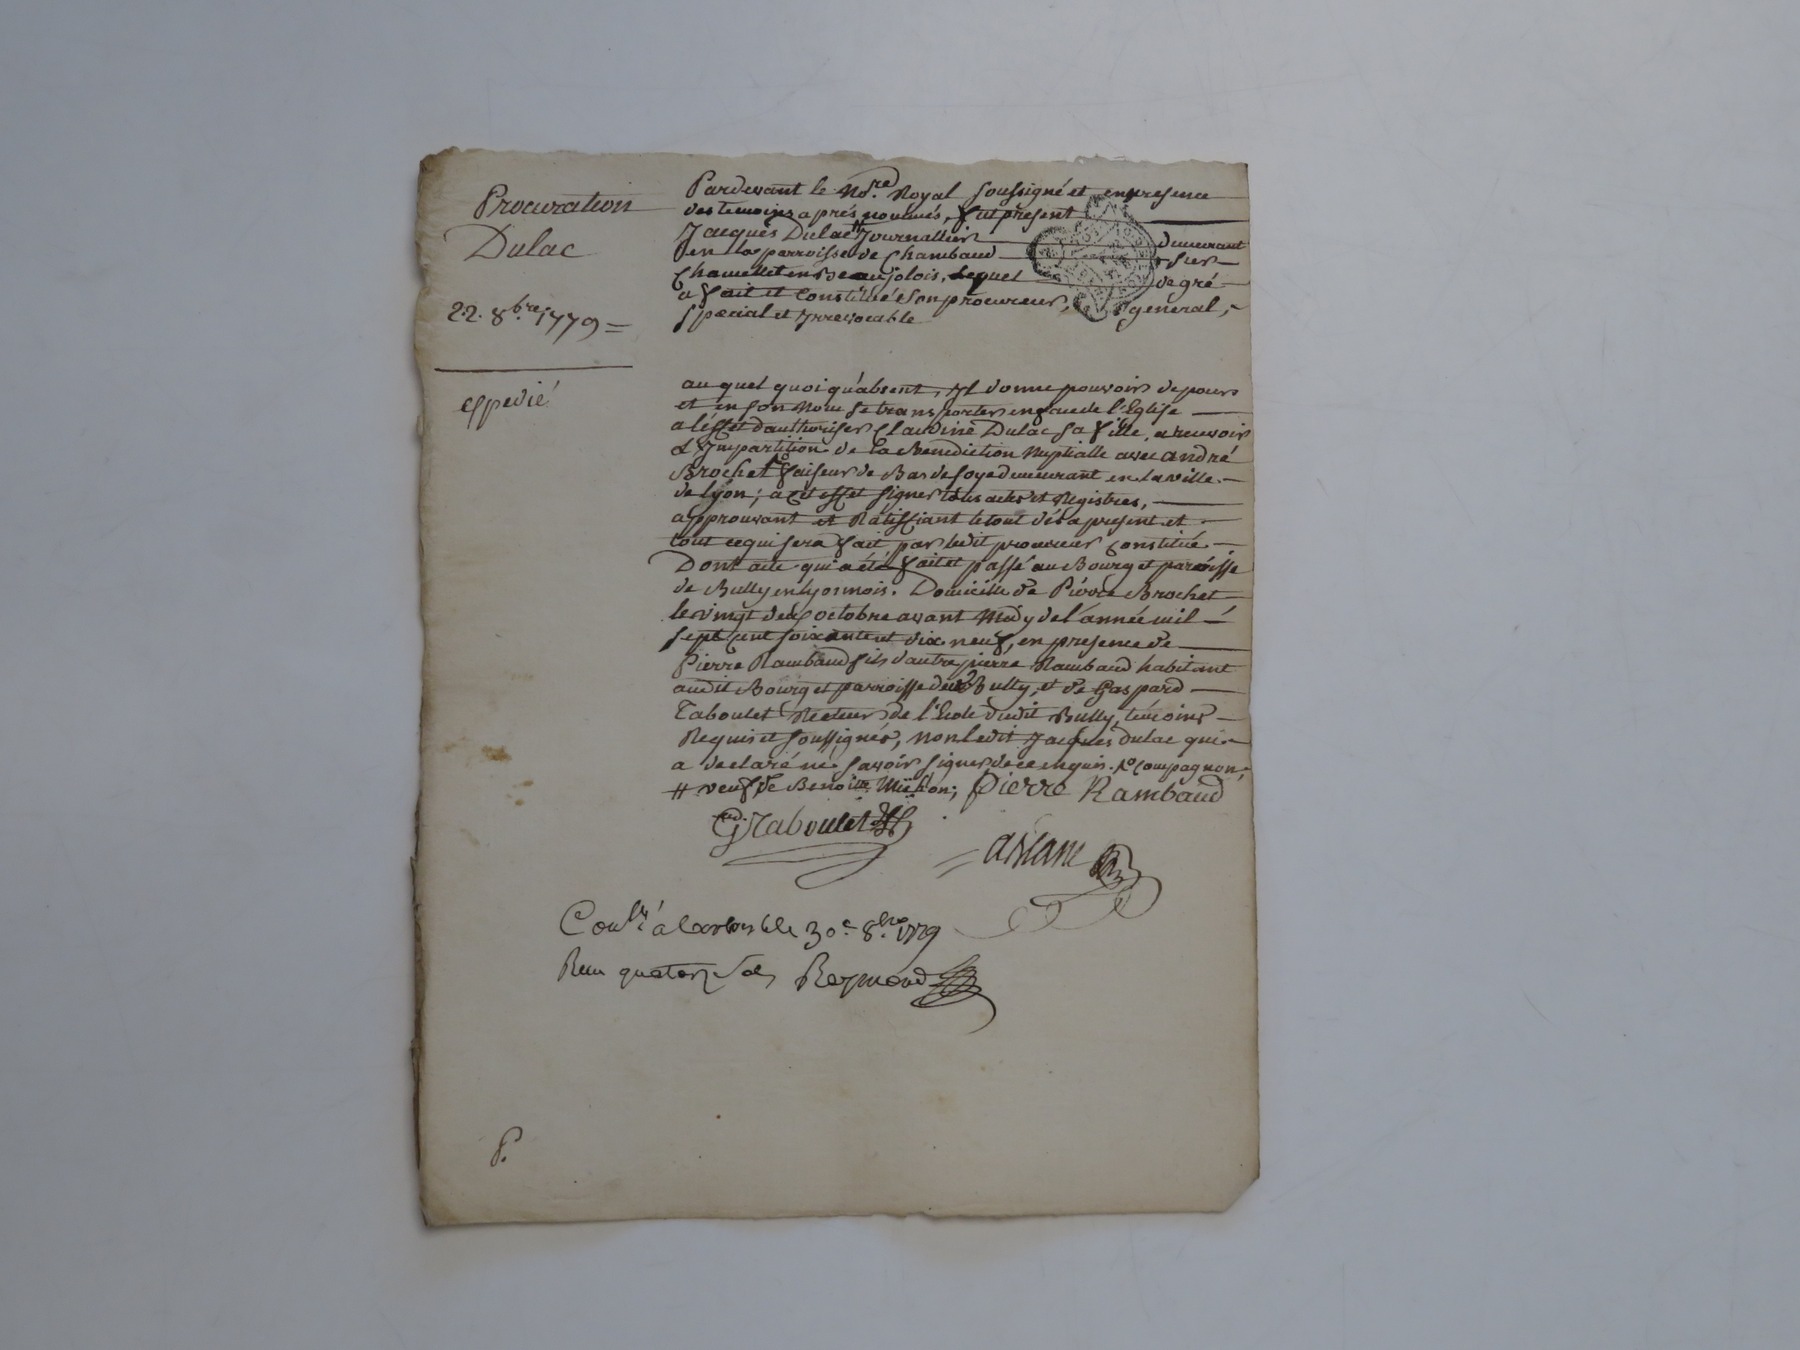 Procuration
Dulac
22. 8.bre 1779 =
expedié
Pardevant le No.re Royal soussigné et en presence
des temoins aprés nommés, fut present
Jacques Dulac # Journallier demeurant
en la parroisse de Chambaud sur
Chamellet en Beaujolois, Lequel de gré
a fait et Constitué son procureur, general,
special et Irrevocable
au quel quoi qu'absent, Il donne pouvoir de pour
et en son Nom se transporter en face de l'Eglise
a l'effet d'authoriser Claudine Dulac sa fille, a recevoir
L'Impartition de la Benediction Nuptialle avec andré
Brochet faiseur de Bas de soye demeurant en la ville
de Lyon; a cet effet signer tous actes et Registres,
approuvant et Ratiffiant le tout dés a present et
tout ce qui sera fait par ledit procureur Constitué
Dont acte qui a été fait et passé au Bourg et paroisse
de Bully en Lyonnois. Domicille de Pierre Brochet
le vingt deux octobre avant Midy de l'année mil
sept cent soixante et dix neuf, en presence de
Pierre Rambaud fils d'autre pierre Rambaud habitant
audit Bourg et parroisse de Bully, et de Gaspard
Taboulet Recteur de l'Ecole dudit Bully, temoins
Requis et soussignés, non ledit Jacques Dulac qui
a declaré ne savoir signer de ce enquis. compagnon,
# veuf de Benoitte Michon; Pierre Rambaud
GTaboulet
Con.lé à le 30.e 8.bre 1779
Recu quatorze sols Reymond
P.